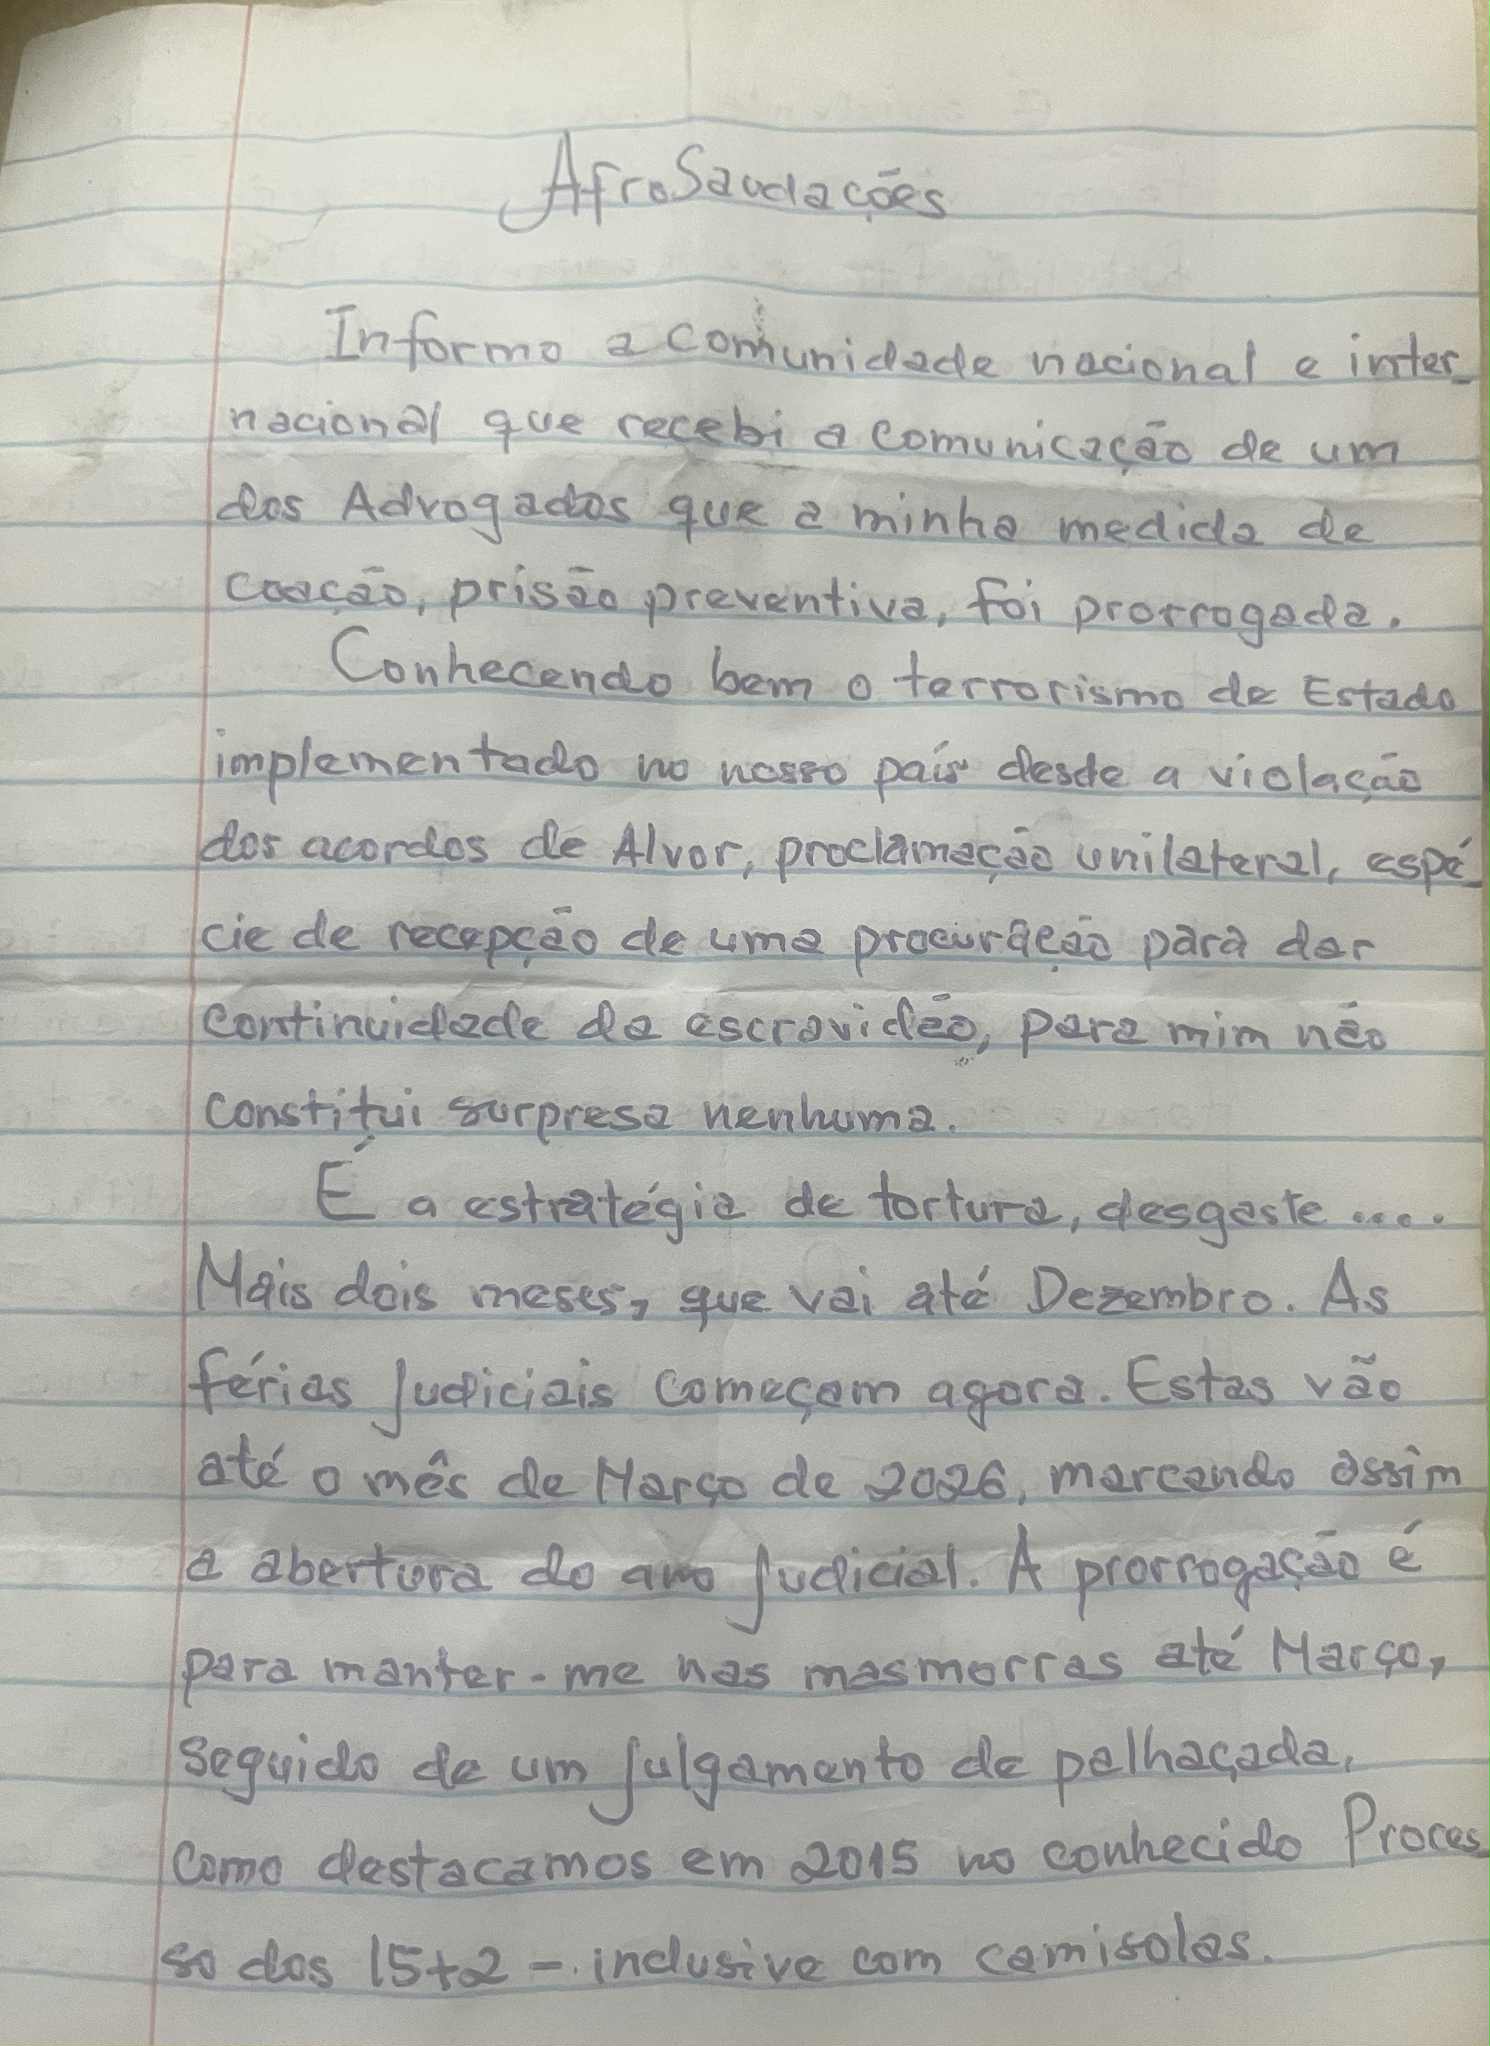 AfroSaudações
Informo a comunidade nacional e inter-
nacional que recebi a comunicação de um
dos Advogados que a minha medida de
coação, prisão preventiva, foi prorrogada.
Conhecendo bem o terrorismo de Estado
implementado no nosso país desde a violação
dos acordos de Alvor, proclamação unilateral, espé-
cie de recepção de uma procuração para dar
continuidade da escravidão, para mim não
constitui surpresa nenhuma.
É a estratégia de tortura, desgaste....
Mais dois meses, que vai até Dezembro. As
férias judiciais começam agora. Estas vão
até o mês de Março de 2026, marcando assim
a abertura do ano judicial. A prorrogação é
para manter-me nas masmorras até Março,
seguido de um julgamento de palhaçada,
como destacamos em 2015 no conhecido Proces-
so dos 15+2 - inclusive com camisolas.